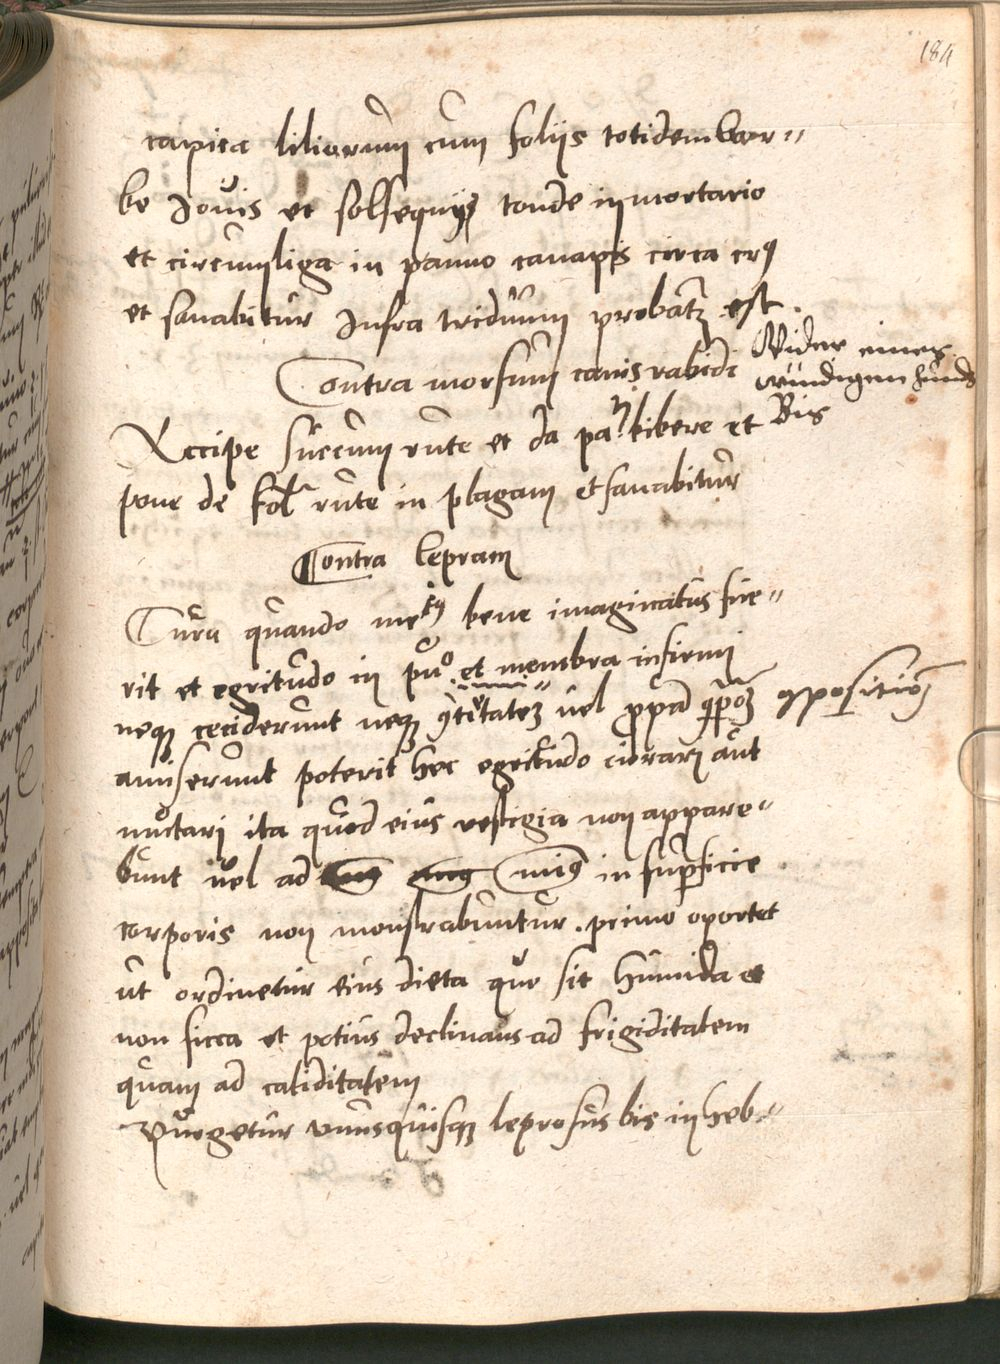 184
capita liliorum cum foliis totidem bar-
be Jovis et solsequys tonde in mortario
et circumliga in panno canapis circa
et sanabitur Infra triduum probatz est.
Contra morsum canis rabidi
Wider eines
wündigenn hunds
Bis
Recipe succum rute et da bibere et
pone de fol rute in plagam et sanabitur
Contra lepram
Cura quando bene imaginatus fue-
rit et egritudo in puo. et membra infirmi
neq ceciderunt neq vel
amiserunt poterit hec egritudo curari aut
muctari ita quod eius vestigia non appare-
bunt vel ad in superficie
corporis non monstrabuntur. primo oportet
ut ordinetur eius dieta que sit humida et
non sicca et potius declinans ad frigiditatem
quam ad caliditatem
Purgetur unusquisq leprosus bis in heb-